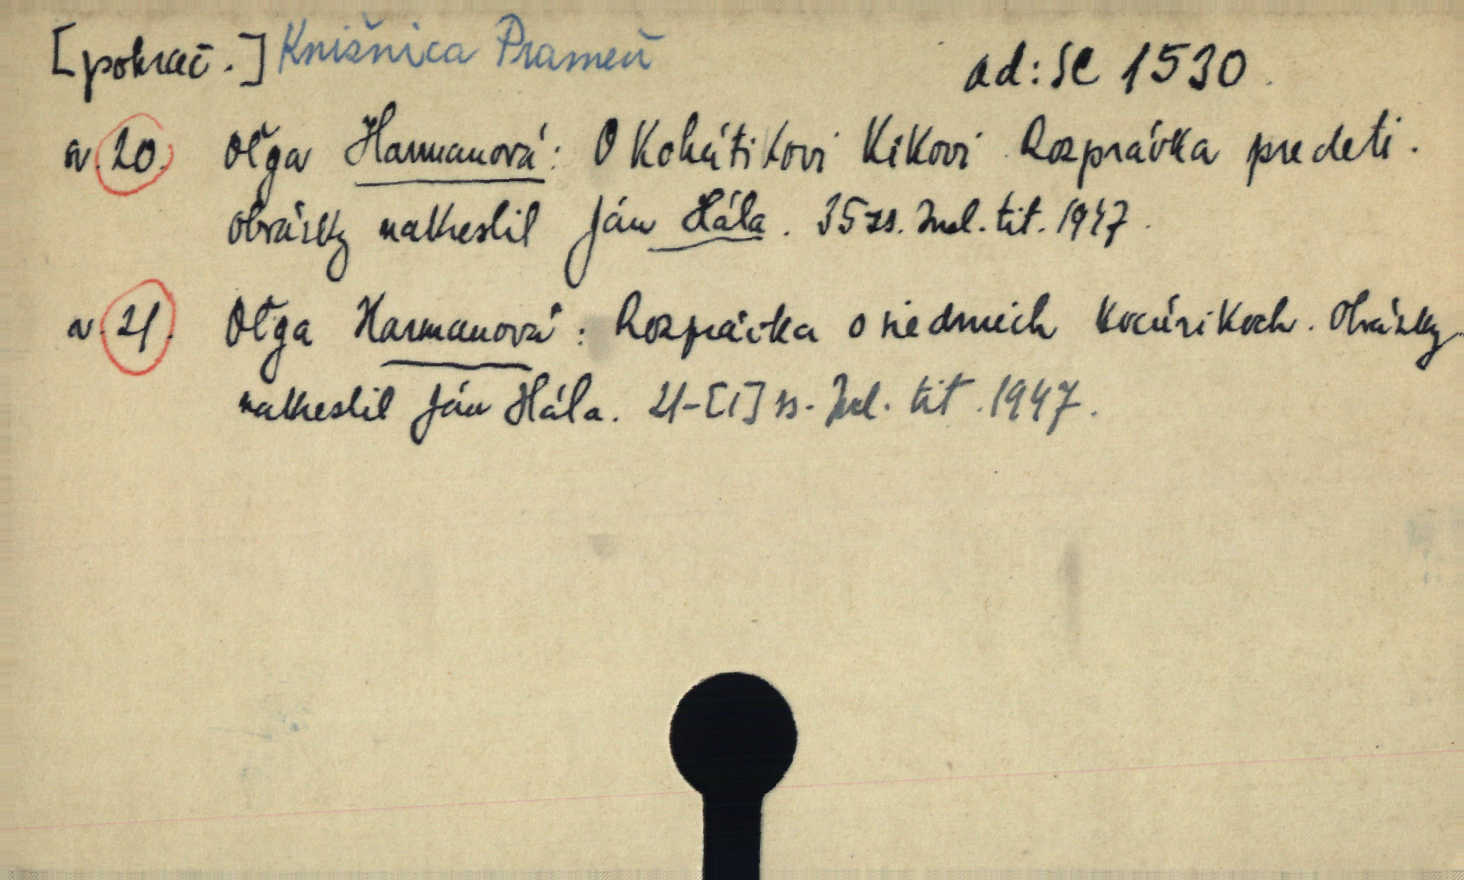 [pokrač.] Knižnica Prameň ad: SC 1530.
a 20. Oľga Harmanová: O Kohútikovi Kikovi Rozprávka pre deti.
obrázky nakreslil Ján Hála. 35 ss. Incl. tit. 1947.
a 21. Oľga Harmanová: Rozprávka o siedmich kocúrikoch. Obrázky
nakreslil Ján Hála. 21-[1] ss. Incl. tit. 1947.